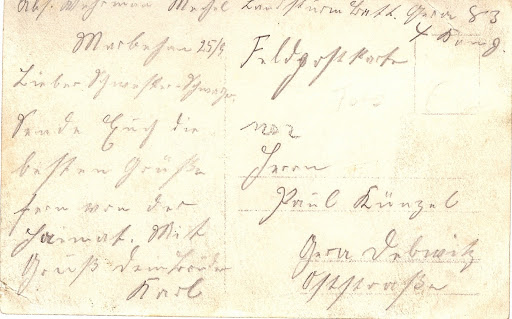 Abs. Wehrman Mechel Landsturm Batl. Gera 83
4 Komp.
Marbehan 25/9
Feldpostkarte
Liebe Schwester Schwager
Sende Euch die
besten Grüße
fern von der
Haimat. Mit
Gruß dem Bruder
Karl
Herrn
Paul Künzel
Gera Debwitz
Oststraße